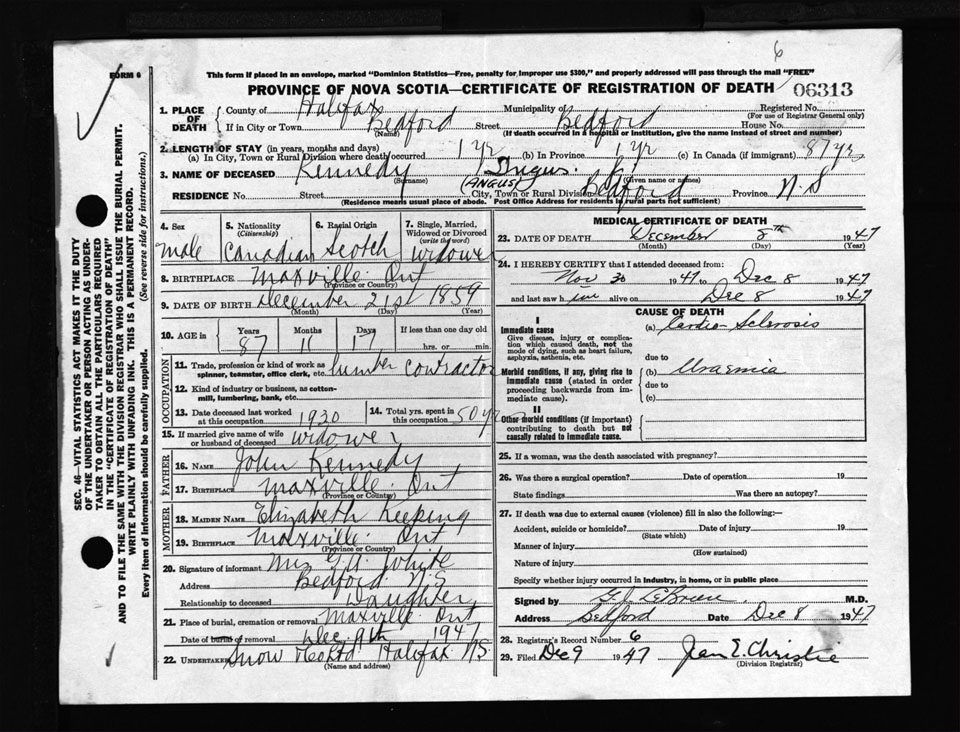 6
FORM 6
This form if placed in an envelope, marked "Dominion Statistics—Free, penalty for improper use $300," and properly addressed will pass through the mail "FREE"
PROVINCE OF NOVA SCOTIA—CERTIFICATE OF REGISTRATION OF DEATH 06313
1. PLACE OF DEATH { County of Halifax Municipality of Bedford Registered No.
(For use of Registrar General only)
If in City or Town Bedford Street House No.
(Name) (If death occurred in a hospital or institution, give the name instead of street and number)
2. LENGTH OF STAY (in years, months and days)
(a) In City, Town or Rural Division where death occurred 1 yr (b) In Province 1 yr (c) In Canada (if immigrant) 87 yrs
3. NAME OF DECEASED Kennedy Angus
(Surname) (ANGUS) (Given name or names)
RESIDENCE No. Street City, Town or Rural Division Bedford Province N.S
(Residence means usual place of abode. Post Office Address for residents in rural parts not sufficient)
4. Sex Male
5. Nationality (Citizenship) Canadian
6. Racial Origin Scotch
7. Single, Married, Widowed or Divorced (write the word) Widower
8. BIRTHPLACE Maxville Ont
(Province or Country)
9. DATE OF BIRTH December 21st 1859
(Month) (Day) (Year)
10. AGE in { Years 87 Months 11 Days 17 If less than one day old
hrs. or min.
OCCUPATION
11. Trade, profession or kind of work as spinner, teamster, office clerk, etc. lumber contractor
12. Kind of industry or business, as cotton-mill, lumbering, bank, etc.
13. Date deceased last worked at this occupation 1930
14. Total yrs. spent in this occupation 50 yrs
15. If married give name of wife or husband of deceased widower
FATHER
16. NAME John Kennedy
17. BIRTHPLACE Maxville Ont
(Province or Country)
MOTHER
18. MAIDEN NAME Elizabeth Keeping
19. BIRTHPLACE Maxville Ont
(Province or Country)
20. Signature of informant Mrs White
Address Bedford N.S
Relationship to deceased Daughter
21. Place of burial, cremation or removal Maxville Ont
Date of burial or removal Dec. 9th 1947
22. UNDERTAKER Snow & Co Ltd Halifax N.S.
(Name and address)
MEDICAL CERTIFICATE OF DEATH
23. DATE OF DEATH December 8th 1947
(Month) (Day) (Year)
24. I HEREBY CERTIFY that I attended deceased from:
Nov 30 1947 to Dec 8 1947
and last saw him alive on Dec 8 1947
CAUSE OF DEATH
I
Immediate cause
Give disease, injury or complication which caused death, not the mode of dying, such as heart failure, asphyxia, asthenia, etc.
(a) Cardio-Sclerosis
due to
Morbid conditions, if any, giving rise to immediate cause (stated in order proceeding backwards from immediate cause).
(b) Uraemia
due to
(c)
II
Other morbid conditions (if important) contributing to death but not causally related to immediate cause.
25. If a woman, was the death associated with pregnancy?
26. Was there a surgical operation? Date of operation 19
State findings Was there an autopsy?
27. If death was due to external causes (violence) fill in also the following:—
Accident, suicide or homicide? Date of injury 19
(State which)
Manner of injury
(How sustained)
Nature of injury
Specify whether injury occurred in industry, in home, or in public place
Signed by M.D.
Address Bedford Date Dec 8 1947
28. Registrar's Record Number 6
29. Filed Dec 9 1947 Jean E. Christie
(Division Registrar)
SEC. 46—VITAL STATISTICS ACT MAKES IT THE DUTY
OF THE UNDERTAKER OR PERSON ACTING AS UNDER-
TAKER TO OBTAIN ALL THE PARTICULARS REQUIRED
IN THE "CERTIFICATE OF REGISTRATION OF DEATH"
AND TO FILE THE SAME WITH THE DIVISION REGISTRAR WHO SHALL ISSUE THE BURIAL PERMIT.
WRITE PLAINLY WITH UNFADING INK. THIS IS A PERMANENT RECORD.
Every item of information should be carefully supplied. (See reverse side for instructions.)